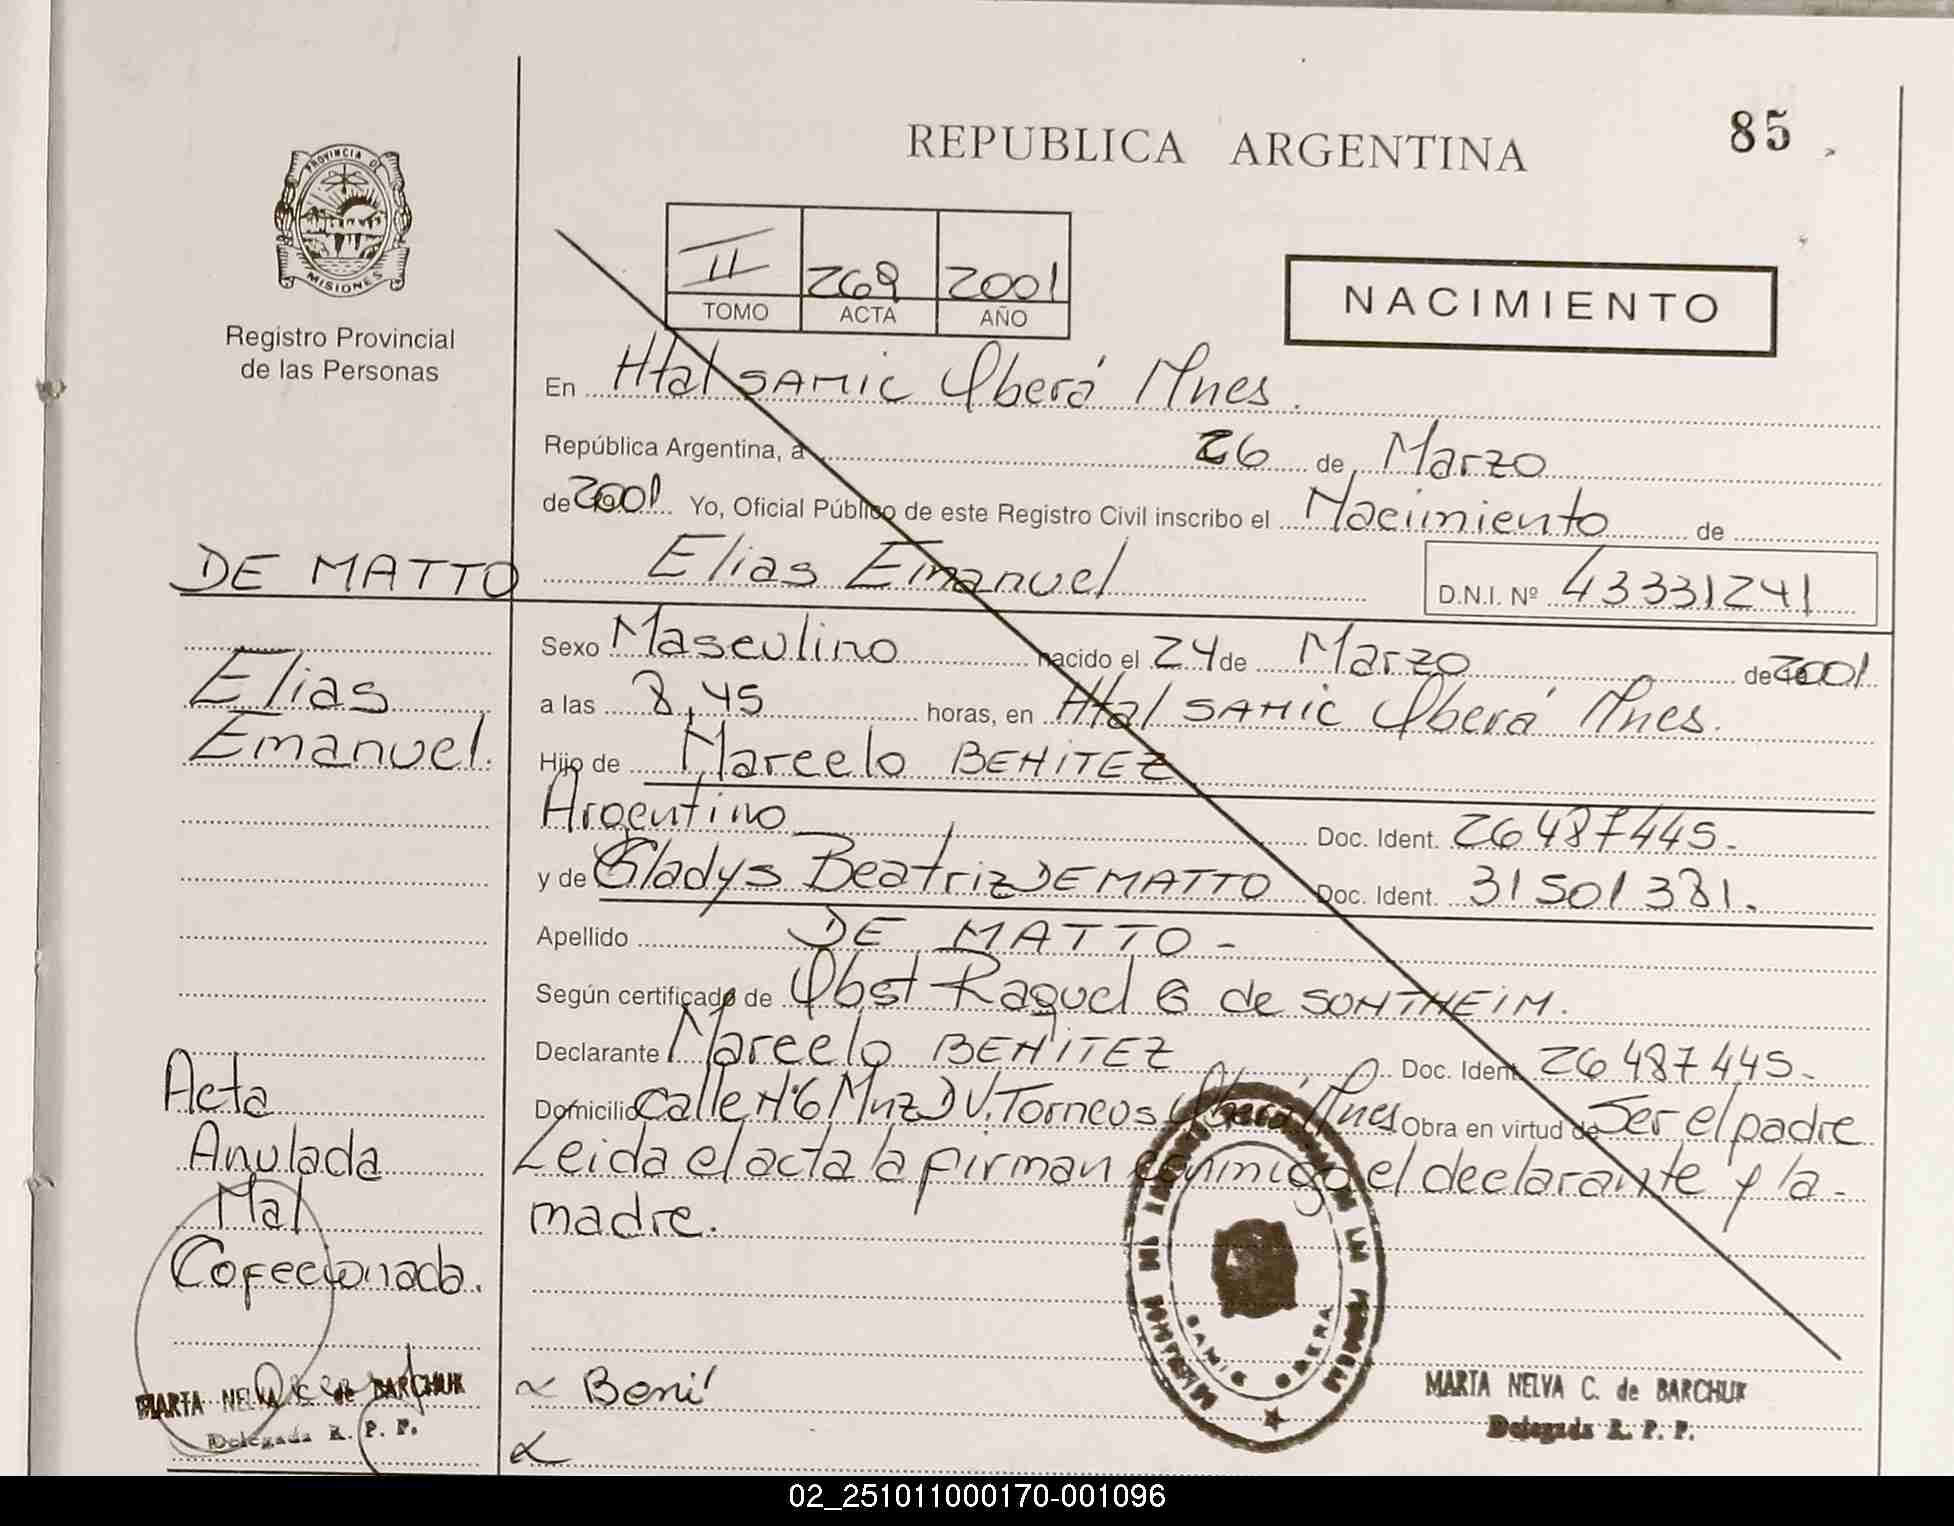 REPUBLICA ARGENTINA
85
PROVINCIA DE
MISIONES
Registro Provincial
de las Personas
II 269 2001
TOMO ACTA AÑO
NACIMIENTO
En Htal SAMIC Oberá Mnes.
República Argentina, a 26 de Marzo
de 2001 Yo, Oficial Público de este Registro Civil inscribo el Nacimiento de
DE MATTO
Elias Emanuel D.N.I. Nº 43331241
Elias
Emanuel.
Sexo Masculino nacido el 24 de Marzo de 2001
a las 8,45 horas, en Htal SAMIC Oberá Mnes.
Hijo de Marcelo BENITEZ
Argentino Doc. Ident. 26487445.
y de Gladys Beatriz DE MATTO Doc. Ident. 31501381.
Apellido DE MATTO -
Según certificado de Obst Raquel G de SONTHEIM.
Declarante Marcelo BENITEZ Doc. Ident. 26487445.
Domicilio calle Nº6 Mnz D V. Torneos Oberá Mnes Obra en virtud de Ser el padre
Leida el acta la firman conmigo el declarante y la
madre.
Acta
Anulada
Mal
Cofeccionada.
MARTA NELVA C. de BARCHUK
Delegada R. P. P.
Beni
SAMIC OBERA
MARTA NELVA C. de BARCHUK
Delegada R. P. P.
02_251011000170-001096